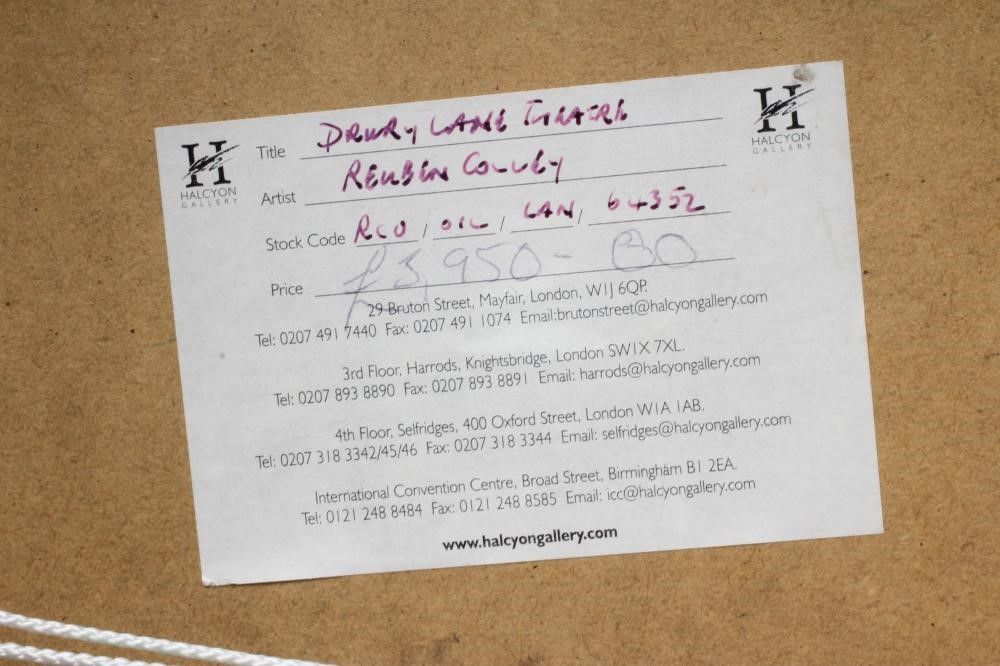 H
HALCYON
GALLERY
H
HALCYON
GALLERY
Title DRURY LANE THEATRE
Artist REUBEN COLLEY
Stock Code RCO / OIL / LAN / 64352
Price £3,950-00
29 Bruton Street, Mayfair, London, W1J 6QP.
Tel: 0207 491 7440 Fax: 0207 491 1074 Email:brutonstreet@halcyongallery.com
3rd Floor, Harrods, Knightsbridge, London SW1X 7XL.
Tel: 0207 893 8890 Fax: 0207 893 8891 Email: harrods@halcyongallery.com
4th Floor, Selfridges, 400 Oxford Street, London W1A 1AB.
Tel: 0207 318 3342/45/46 Fax: 0207 318 3344 Email: selfridges@halcyongallery.com
International Convention Centre, Broad Street, Birmingham B1 2EA.
Tel: 0121 248 8484 Fax: 0121 248 8585 Email: icc@halcyongallery.com
www.halcyongallery.com